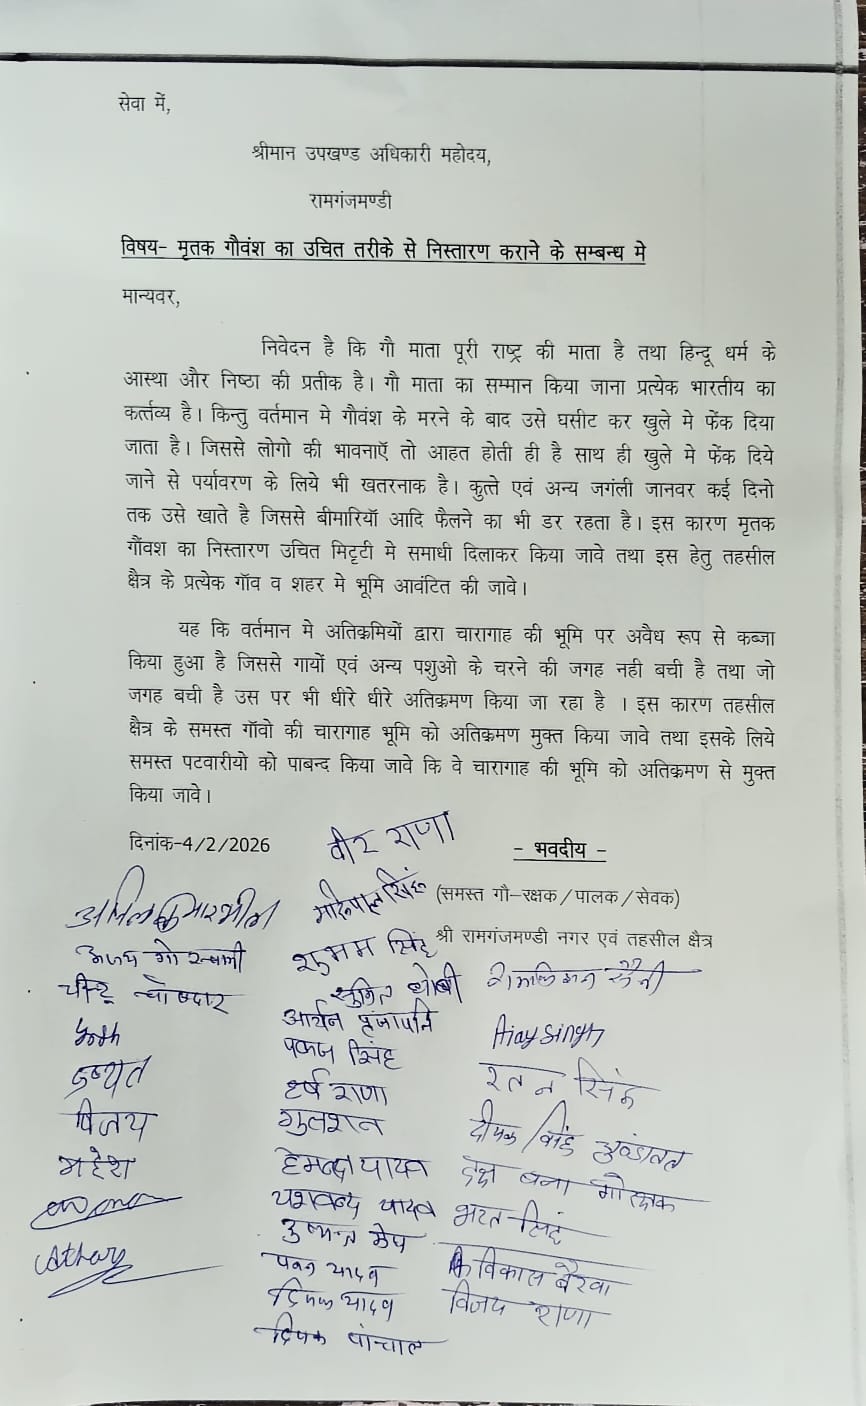 सेवा में,
श्रीमान उपखण्ड अधिकारी महोदय,
रामगंजमण्डी
विषय- मृतक गौवंश का उचित तरीके से निस्तारण कराने के सम्बन्ध मे
मान्यवर,
निवेदन है कि गौ माता पूरी राष्ट्र की माता है तथा हिन्दू धर्म के
आस्था और निष्ठा की प्रतीक है। गौ माता का सम्मान किया जाना प्रत्येक भारतीय का
कर्त्तव्य है। किन्तु वर्तमान मे गौवंश के मरने के बाद उसे घसीट कर खुले मे फेंक दिया
जाता है। जिससे लोगो की भावनाऍ तो आहत होती ही है साथ ही खुले मे फेंक दिये
जाने से पर्यावरण के लिये भी खतरनाक है। कुत्ते एवं अन्य जगंली जानवर कई दिनो
तक उसे खाते है जिससे बीमारियॉ आदि फैलने का भी डर रहता है। इस कारण मृतक
गौंवश का निस्तारण उचित मिट्टी मे समाधी दिलाकर किया जावे तथा इस हेतु तहसील
क्षैत्र के प्रत्येक गॉव व शहर मे भूमि आवंटित की जावे।
यह कि वर्तमान मे अतिक्रमियों द्वारा चारागाह की भूमि पर अवैध रूप से कब्जा
किया हुआ है जिससे गायों एवं अन्य पशुओ के चरने की जगह नही बची है तथा जो
जगह बची है उस पर भी धीरे धीरे अतिक्रमण किया जा रहा है । इस कारण तहसील
क्षैत्र के समस्त गॉवो की चारागाह भूमि को अतिक्रमण मुक्त किया जावे तथा इसके लिये
समस्त पटवारीयो को पाबन्द किया जावे कि वे चारागाह की भूमि को अतिक्रमण से मुक्त
किया जावे।
दिनांक-4/2/2026
वीर राणा
- भवदीय -
(समस्त गौ-रक्षक/पालक/सेवक)
श्री रामगंजमण्डी नगर एवं तहसील क्षैत्र
अनिल कुमार भील
शुभम सिंह
अजय गोस्वामी
सुमित धोबी
सैनी
आर्यन प्रजापति
Ajay Singh
पंकज सिंह
रतन सिंह
हर्ष राणा
विजय
गुलशन
दीपक सिंह
महेश
हेमन्त यादव
दक्ष बना गौरक्षक
यशवन्त यादव
भरत सिंह
पवन यादव
विकास बैरवा
दिपक यादव
विजय राणा
दिपक पांचाल